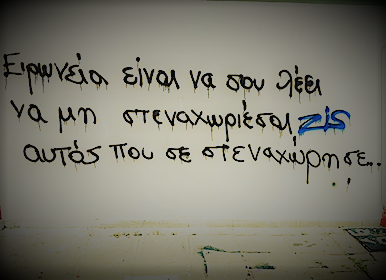 Ειρωνεία είναι να σου λέει
να μη στεναχωριέσαι ZIS
αυτός που σε στεναχώρησε..